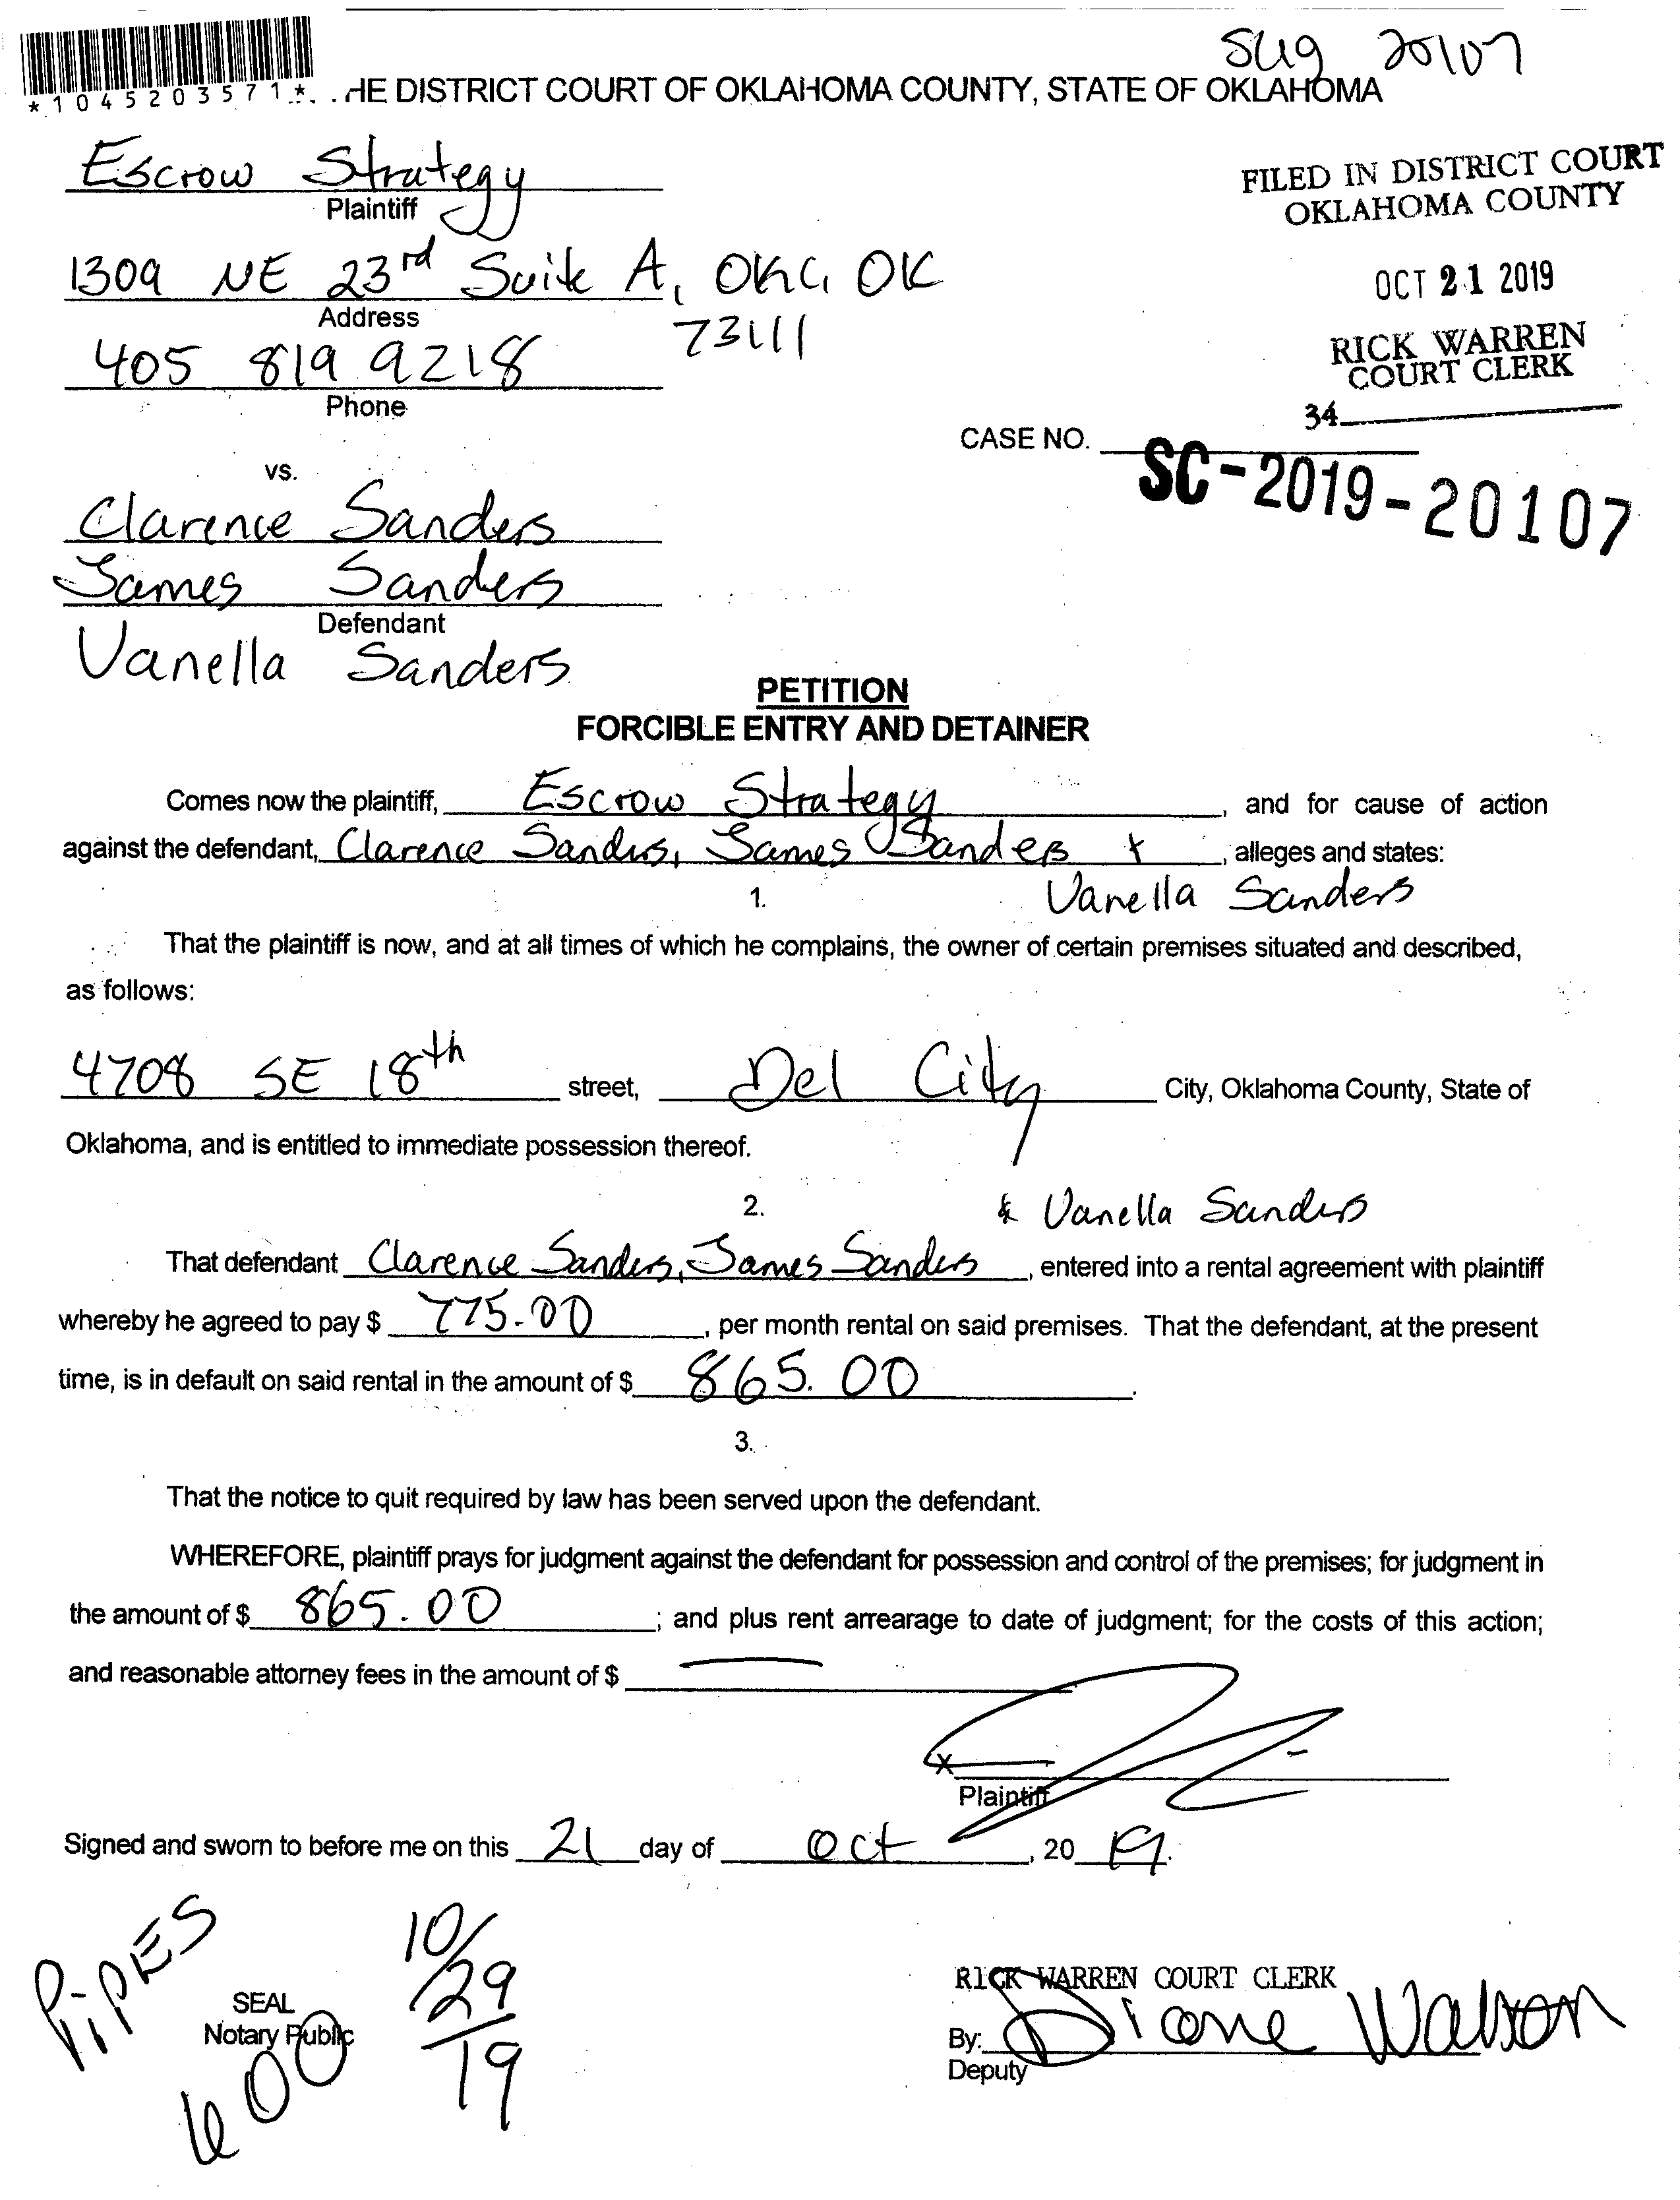 Sug 20107
*1045203571* HE DISTRICT COURT OF OKLAHOMA COUNTY, STATE OF OKLAHOMA
Escrow Strategy
Plaintiff
FILED IN DISTRICT COURT
OKLAHOMA COUNTY
1309 NE 23rd Suite A, OKC, OK
73111
Address
OCT 21 2019
405 819 9218
Phone
RICK WARREN
COURT CLERK
34
CASE NO.
SC-2019-20107
vs.
Clarence Sanders
James Sanders
Defendant
Vanella Sanders
PETITION
FORCIBLE ENTRY AND DETAINER
Comes now the plaintiff, Escrow Strategy, and for cause of action
against the defendant, Clarence Sanders, James Sanders &, alleges and states:
Vanella Sanders
1.
That the plaintiff is now, and at all times of which he complains, the owner of certain premises situated and described,
as follows:
4708 SE 18th street, Del City City, Oklahoma County, State of
Oklahoma, and is entitled to immediate possession thereof.
2.
& Vanella Sanders
That defendant Clarence Sanders, James Sanders, entered into a rental agreement with plaintiff
whereby he agreed to pay $ 775.00, per month rental on said premises. That the defendant, at the present
time, is in default on said rental in the amount of $ 865.00.
3.
That the notice to quit required by law has been served upon the defendant.
WHEREFORE, plaintiff prays for judgment against the defendant for possession and control of the premises; for judgment in
the amount of $ 865.00; and plus rent arrearage to date of judgment; for the costs of this action;
and reasonable attorney fees in the amount of $ —
X
Plaintiff
Signed and sworn to before me on this 21 day of Oct, 2019.
PiPES
10/29/19
SEAL
Notary Public
600
RICK WARREN COURT CLERK
By: Diane Watson
Deputy